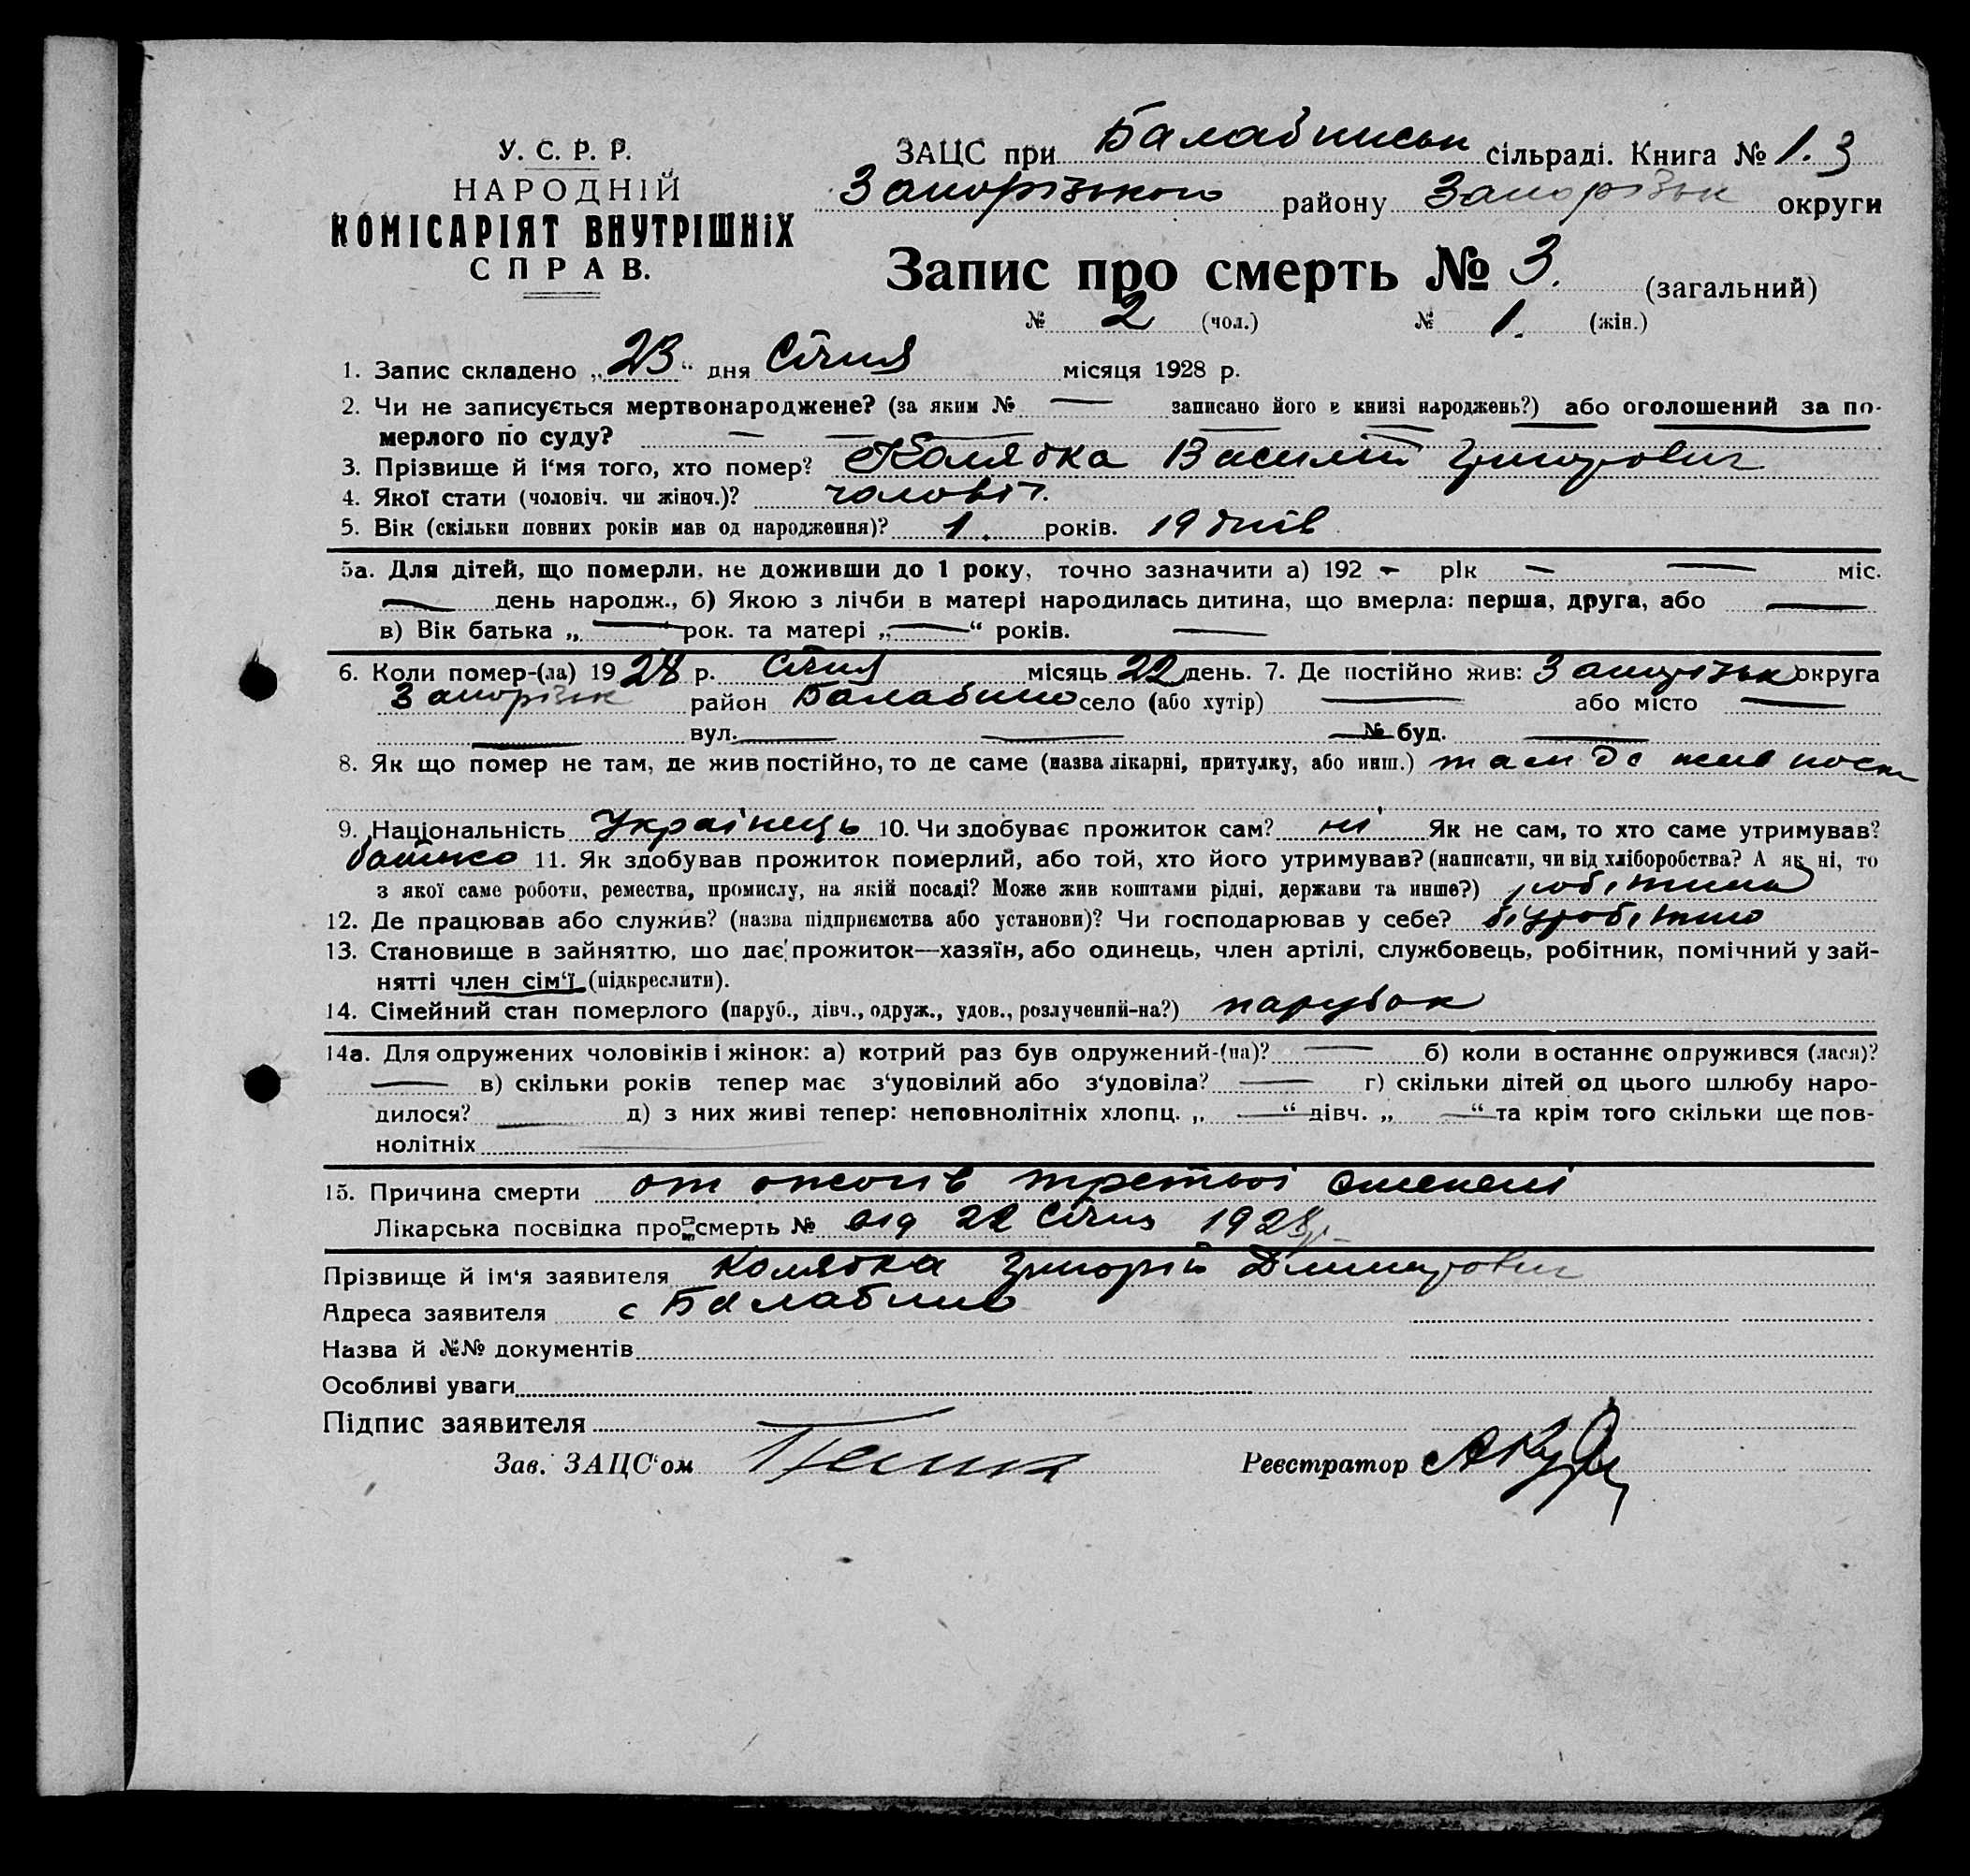 У. С. Р. Р.
НАРОДНІЙ
КОМІСАРІЯТ ВНУТРІШНіХ
СПРАВ.
ЗАЦС при Балабинськ сільраді. Книга № 1. 3
Запорізького району Запорізьк округи
Запис про смерть № 3. (загальний)
№ 2 (чол.) № 1. (жін.)
1. Запис складено „23“ дня Січня місяця 1928 р.
2. Чи не записується мертвонароджене? (за яким № — записано його в книзі народжень?) або оголошений за по-
мерлого по суду? — — —
3. Прізвище й і‘мя того, хто помер? Колядка Василій Григорович
4. Якої стати (чоловіч. чи жіноч.)? чоловіч.
5. Вік (скільки повних років мав од народження)? 1. років. 19 днів
5а. Для дітей, що померли, не доживши до 1 року, точно зазначити а) 192 - рік — — міс.
— день народж., б) Якою з лічби в матері народилась дитина, що вмерла: перша, друга, або —
в) Вік батька „—“ рок. та матері „—“ років. —
6. Коли помер-(ла) 1928 р. Січня місяць 22 день. 7. Де постійно жив: Запорізьк округа
Запорізьк район Балабино село (або хутір) — або місто —
— вул. — — № буд. —
8. Як що помер не там, де жив постійно, то де саме (назва лікарні, притулку, або инш.) там де жив
9. Національність Українець 10. Чи здобуває прожиток сам? ні Як не сам, то хто саме утримував?
батько 11. Як здобував прожиток померлий, або той, хто його утримував? (написати, чи від хліборобства? А як ні, то
з якої саме роботи, ремества, промислу, на якій посаді? Може жив коштами рідні, держави та инше?)
12. Де працював або служив? (назва підприємства або установи)? Чи господарював у себе?
13. Становище в зайняттю, що дає прожиток—хазяїн, або одинець, член артілі, службовець, робітник, помічний у зай-
нятті член сім‘ї (підкреслити).
14. Сімейний стан померлого (паруб., дівч., одруж., удов., розлучений-на?) парубок
14а. Для одружених чоловіків і жінок: а) котрий раз був одружений-(на)? — б) коли в останнє одружився (лася)?
— в) скільки років тепер має з‘удовілий або з‘удовіла? — г) скільки дітей од цього шлюбу наро-
дилося? — д) з них живі тепер: неповнолітніх хлопц. „—“ дівч. „—“ та крім того скільки ще пов-
нолітніх —
15. Причина смерти от ожогів третьої степені
Лікарська посвідка про смерть № від 22 Січня 1928 р.
Прізвище й ім‘я заявителя Колядка Григорій Дмитрович
Адреса заявителя с Балабино
Назва й №№ документів
Особливі уваги
Підпис заявителя
Зав. ЗАЦС‘ом Реєстратор